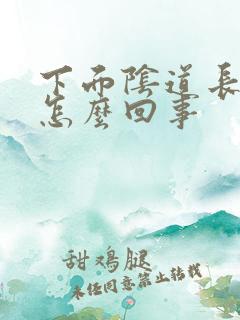 下而陰道長
怎麼回事
甜鸡腿
未经同意禁止转载